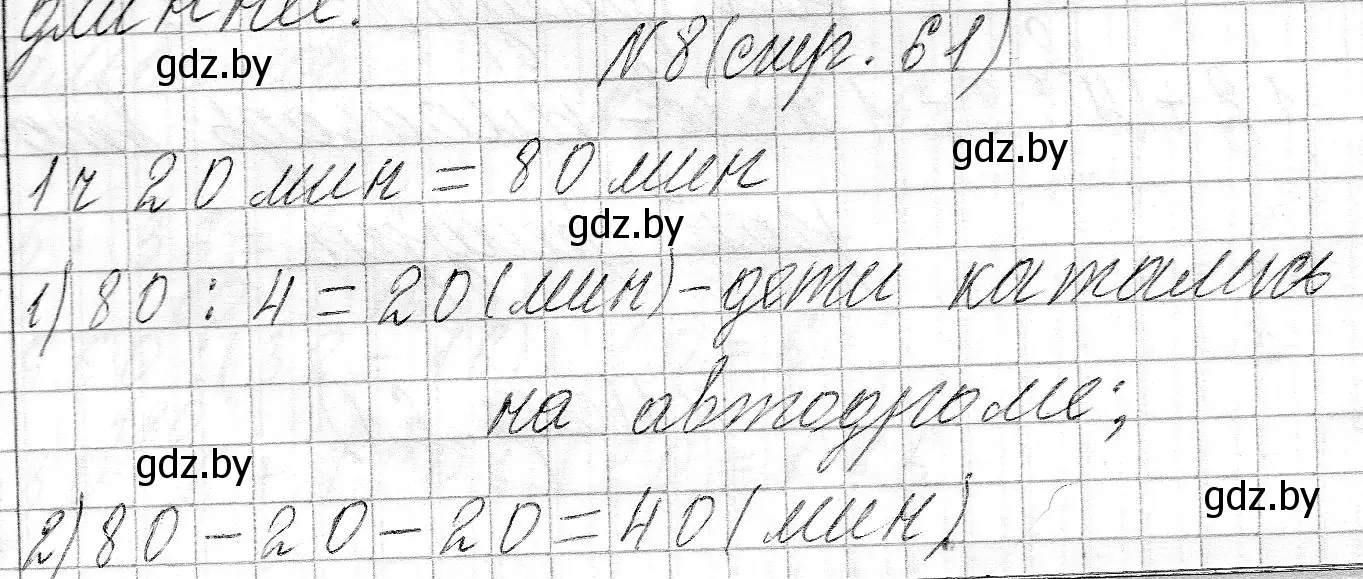 длиннее.
gdz.by
N 8 (стр. 61)
gdz.by
1 ч 20 мин = 80 мин
gdz.by
1) 80 : 4 = 20 (мин) - дети катались
на автодроме;
gdz.by
gdz.by
2) 80 - 20 - 20 = 40 (мин)